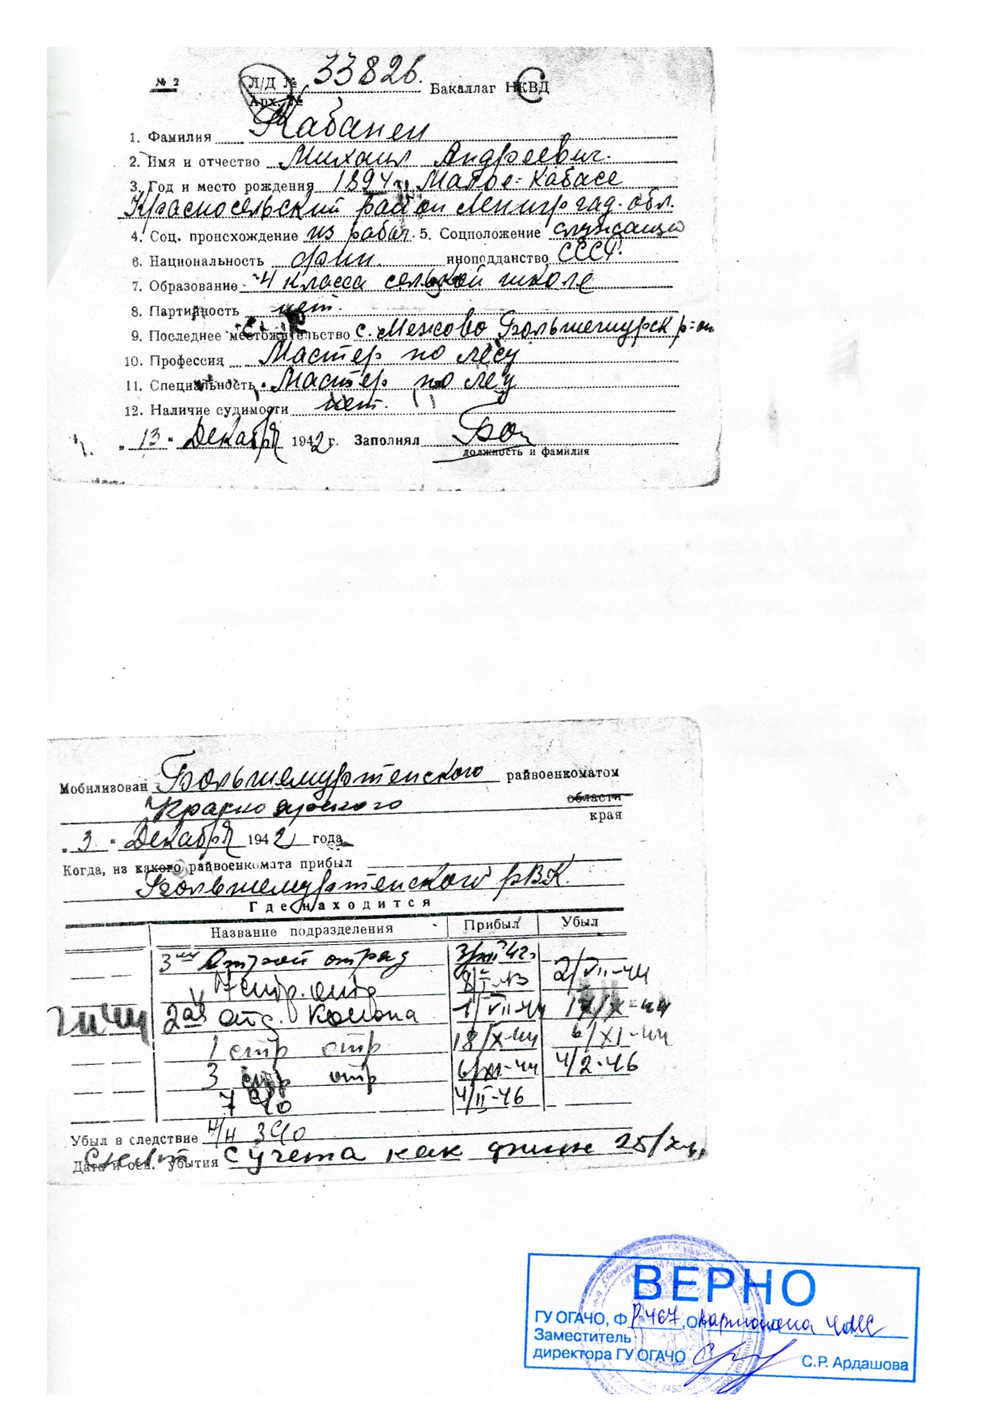 № 2 Л/Д № 33826. Бакаллаг НКВД
Арх. №
1. Фамилия Кабанен
2. Имя и отчество Михаил Андреевич.
3. Год и место рождения 1894 г. Малое-Кабасе
Красносельский район Ленинград. обл.
4. Соц. происхождение из рабоч. 5. Соцположение служащий
6. Национальность финн. иноподданство СССР.
7. Образование 4 класса сельской школе
8. Партийность нет.
9. Последнее местожительство с. Межово Большемурск р-он
10. Профессия Мастер по лесу
11. Специальность Мастер по лесу
12. Наличие судимости нет.
" 13 " Декабря 1942 г. Заполнял
должность и фамилия
Мобилизован Большемуртенского райвоенкоматом
Красноярского области
края
" 3 " Декабря 1942 года
Когда, из какого райвоенкомата прибыл
Большемуртенского РВК.
Где находится
Название подразделения Прибыл Убыл
3ий отряд 3/XII 42г.
7 стр. отр 2/VII-44
2ая отд. Колона 1/VII-44
1 стр отр 18/X-44 6/XI-44
3 стр отр 6/XI-44 4/2-46
7 4/II-46
Убыл в следствие
Дата и осн. убытия с учета как финн
ВЕРНО
ГУ ОГАЧО, Ф Р-467, О картотека ЧМС
Заместитель
директора ГУ ОГАЧО С.Р. Ардашова